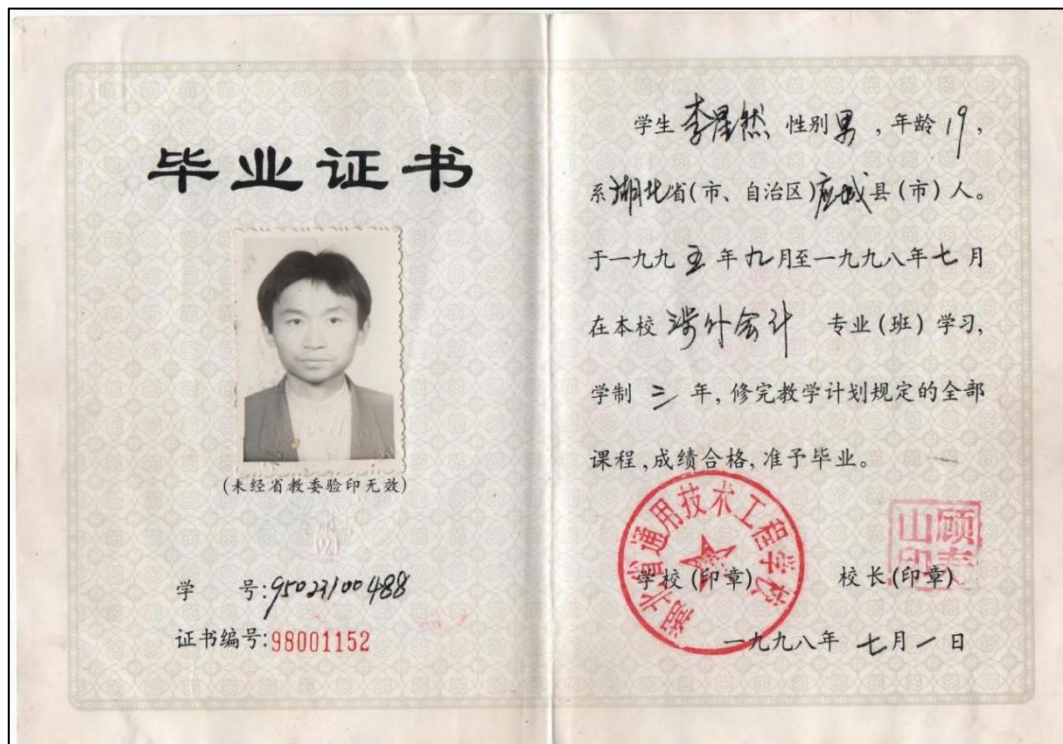 毕业证书
(未经省教委验印无效)
学 号:95023100488
证书编号:98001152
学生李星然 性别男,年龄19,
系湖北省(市、自治区)应城县(市)人。
于一九九五年九月至一九九八年七月
在本校涉外会计 专业(班)学习,
学制三年,修完教学计划规定的全部
课程,成绩合格,准予毕业。
湖北省通用技术工程学校
学校(印章)
校长(印章)
一九九八年七月一日